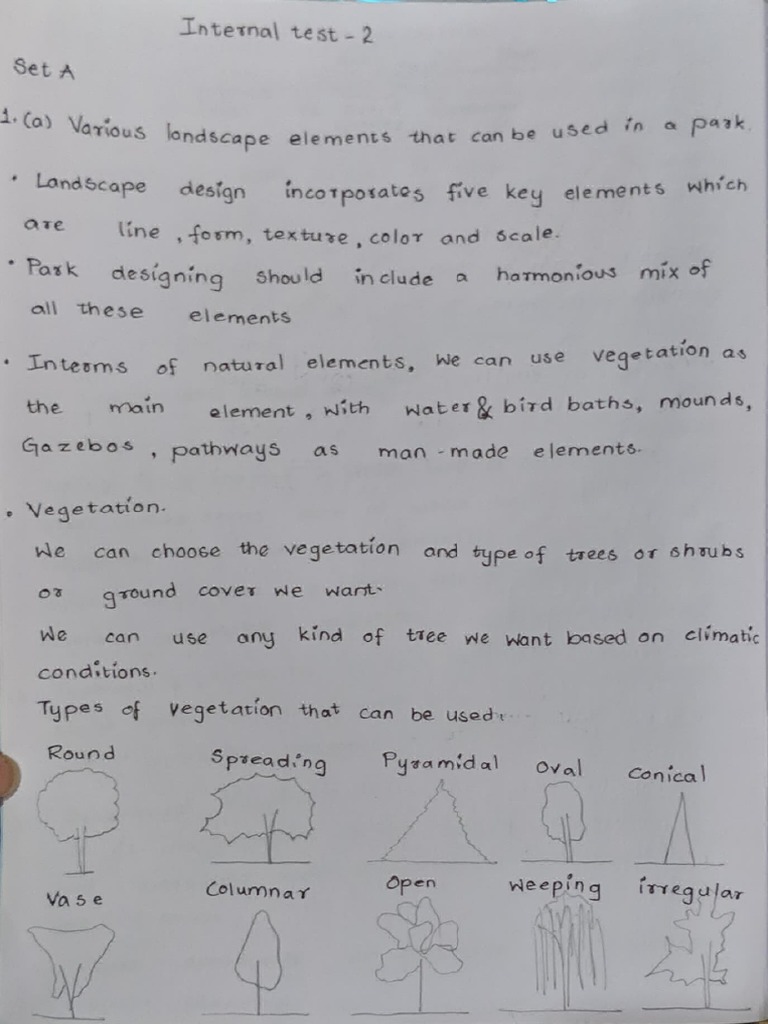 Internal test - 2
Set A
1. (a) Various landscape elements that can be used in a park.
• Landscape design incorporates five key elements which
are line, form, texture, color and scale.
• Park designing should include a harmonious mix of
all these elements
• Interms of natural elements, we can use vegetation as
the main element, with water & bird baths, mounds,
Gazebos, pathways as man-made elements.
• Vegetation.
We can choose the vegetation and type of trees or shrubs
or ground cover we want.
We can use any kind of tree we want based on climatic
conditions.
Types of vegetation that can be used:
Round Spreading Pyramidal Oval Conical
Vase Columnar Open Weeping irregular